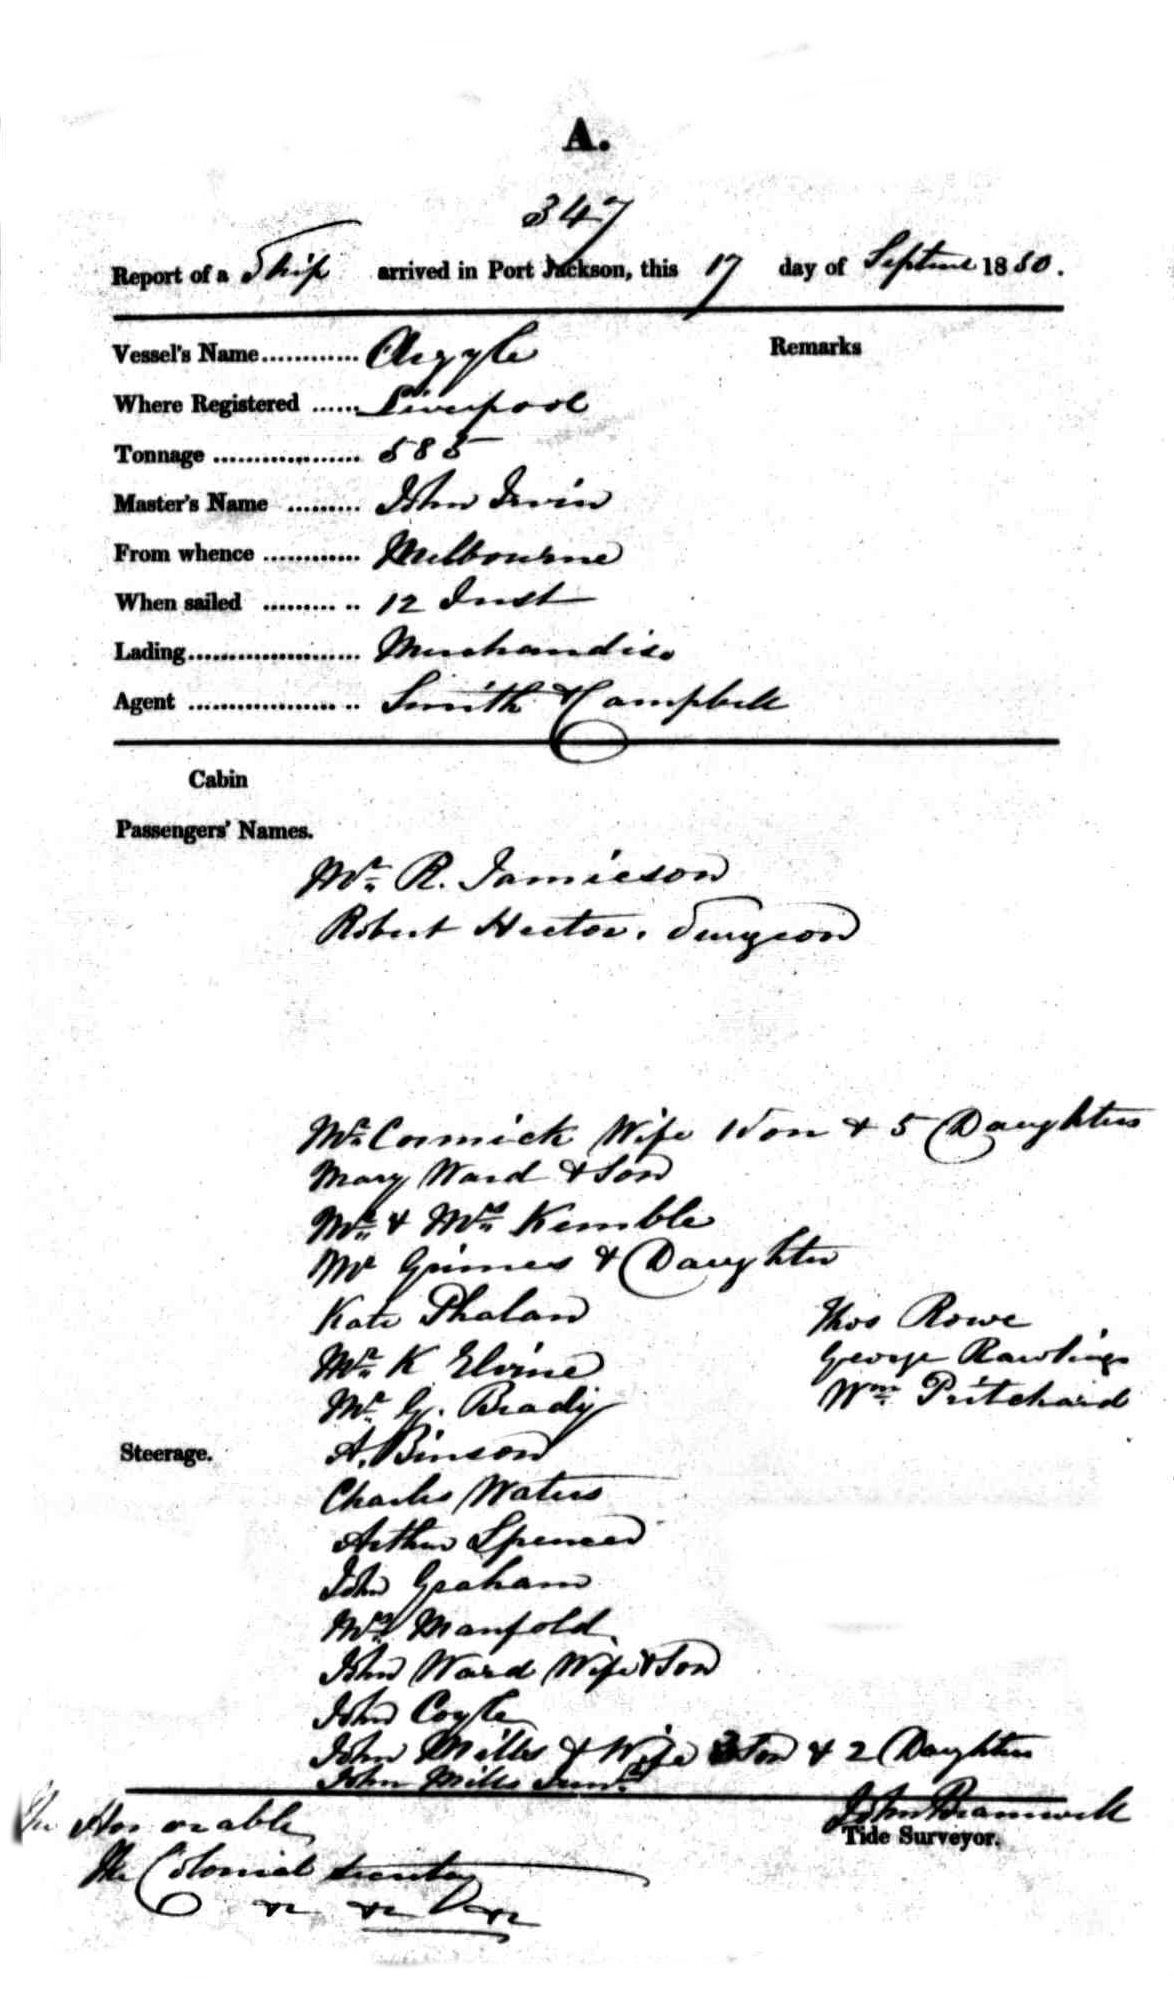 A.
347
Report of a Ship arrived in Port Jackson, this 17 day of Septme 1850.
Vessel's Name............ Argyle
Remarks
Where Registered ...... Liverpool
Tonnage .................. 585
Master's Name ......... John Irvin
From whence ............ Melbourne
When sailed ......... .. 12 Inst
Lading..................... Merchandise
Agent .................. .. Smith & Campbell
Cabin
Passengers' Names.
Mr. R. Jamieson
Robert Hector. Surgeon
Mr. Cormick Wife 1 Son & 5 Daughters
Mary Ward & Son
Mr. & Mrs. Kemble
Mr Grimes & Daughter
Kate Phalan
Mr. K Elvine
Mr. G. Brady
Thos Rowe
George Rawlings
Wm. Pritchard
Steerage.
A. Binson
Charles Waters
Arthur Spencer
John Graham
Mrs. Manfold
John Ward Wife & Son
John Coyle
John Mills & Wife 3 Son & 2 Daughters
John Mills Junr.
John Bramwell
Tide Surveyor.
The Honorable
The Colonial Secretary
&c &c &c